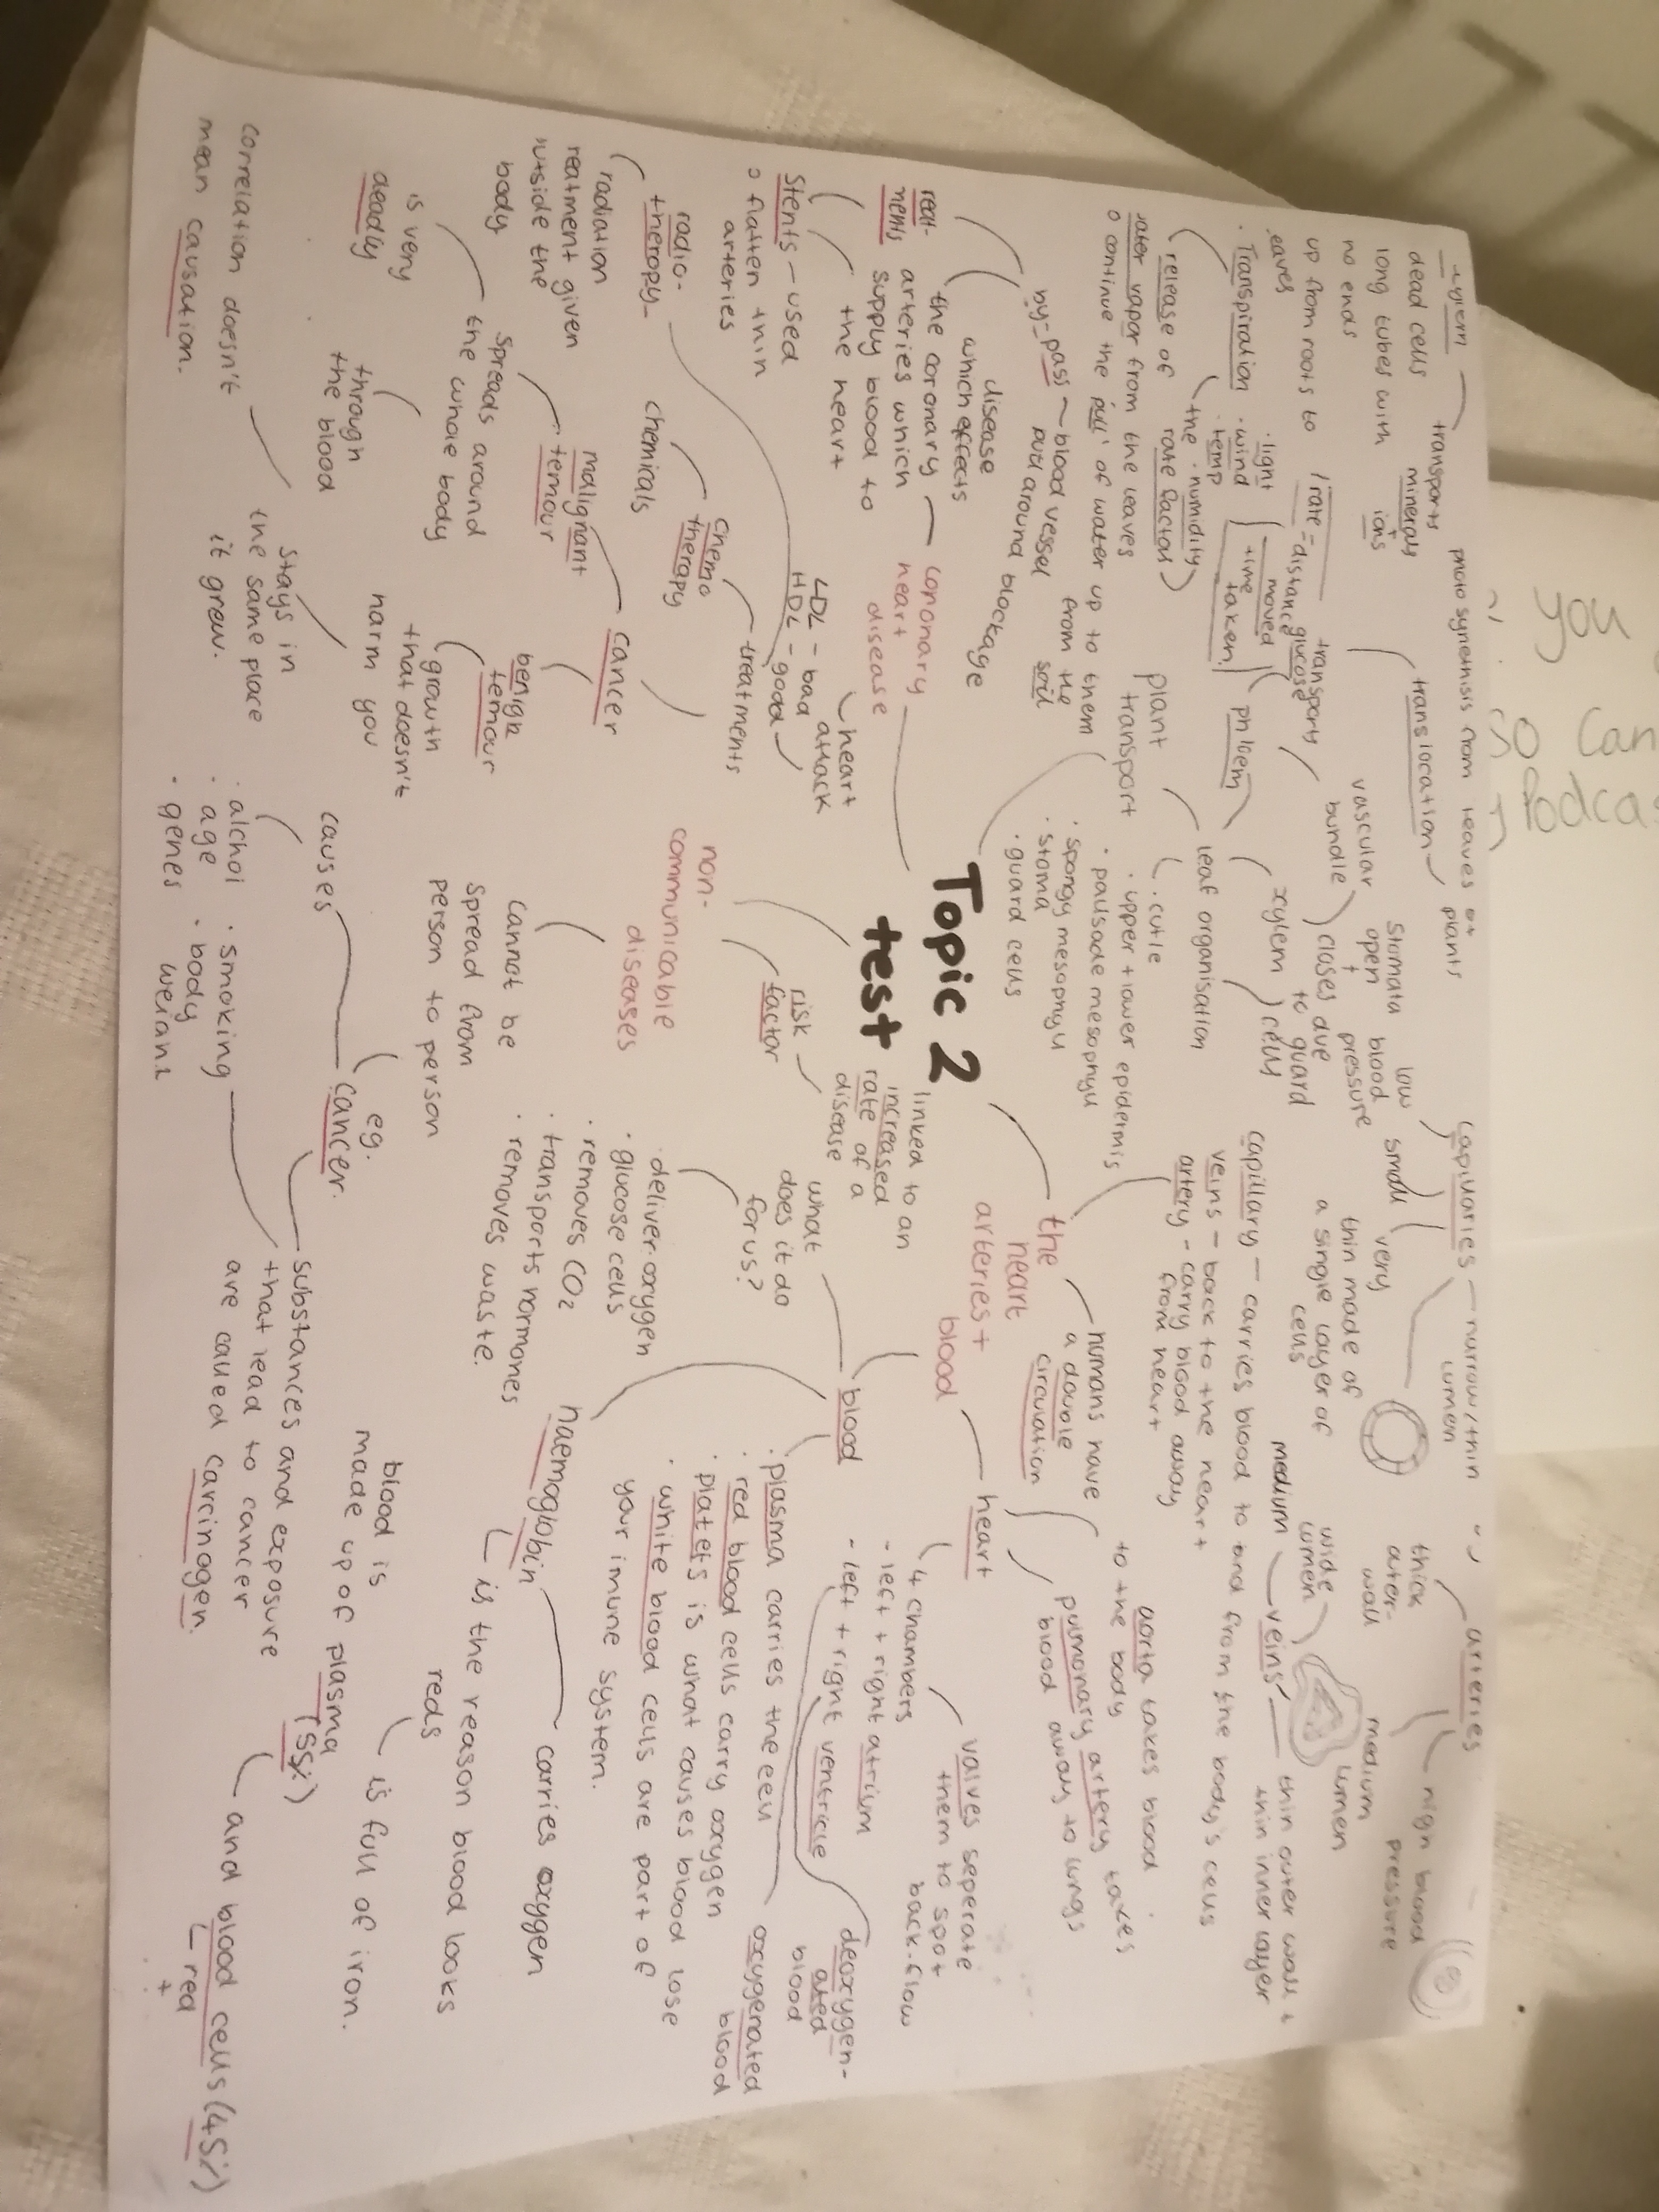 Topic 2
test
xylem
dead cells
long tubes with
no ends
up from roots to
leaves
transports
minerals
+
ions
· Transpiration
release of
water vapor from the leaves
o continue the 'pull' of water up to them
from the
soil
the
rate factors
· light
· wind
· temp
· humidity
rate =
distance
moved
time
taken
photosynethisis from leaves
translocation
plants
transports
glucose
phloem
vascular
bundle
xylem
stomata
open
+
closes due
to guard
cells
plant
transport
leaf organisation
· cutle
· upper + lower epidermis
· pausade mesophyll
· spongy mesophyll
· stoma
· guard cells
coronary
heart
disease
disease
which effects
the coronary
arteries which
supply blood to
the heart
heart
attack
treat-
ments
by-pass ~ blood vessel
put around blockage
Stents - used
o flatten thin
arteries
LDL - bad
HDL - good
non-
communicable
diseases
risk
factor
linked to an
increased
rate of a
disease
cannot be
spread from
person to person
eg.
cancer.
causes
· alchol
· age
· genes
· smoking
· body
weight
substances and exposure
that lead to cancer
are called carcinogen.
correlation doesn't
mean causation.
cancer
treatments
chemo
therapy
chemicals
radio-
theropy-
radiation
reatment given
outside the
body
malignant
temour
spreads around
the whole body
through
the blood
is very
deadly
benign
temour
growth
that doesn't
harm you
stays in
the same place
it grew.
the
heart
arteries +
blood
humans have
a double
circulation
capillary - carries blood to and from the body's cells
veins - back to the heart
artery - carry blood away
from heart
capillaries - narrow/thin
lumen
low
blood
pressure
small
very
thin made of
a single layer of
cells
arteries
thick
outer-
wall
high blood
pressure
medium
lumen
veins
medium
wide
lumen
thin outer wall +
thin inner layer
heart
aorta takes blood
to the body
pulmonary artery takes
blood away to lungs
4 chambers
- left + right atrium
- left + right ventricle
valves seperate
them to spot
back-flow
deoxygen-
ated
blood
oxygenated
blood
blood
what
does it do
for us?
· deliver oxygen
· glucose cells
· removes CO2
· transports hormones
· removes waste.
· plasma carries the cell
· red blood cells carry oxygen
· plates is what causes blood lose
· white blood cells are part of
your imune system.
haemoglobin
carries oxygen
is the reason blood looks
reds
is full of iron.
blood is
made up of plasma
(55%)
and blood cells (45%)
red
+
you
so can
Podca